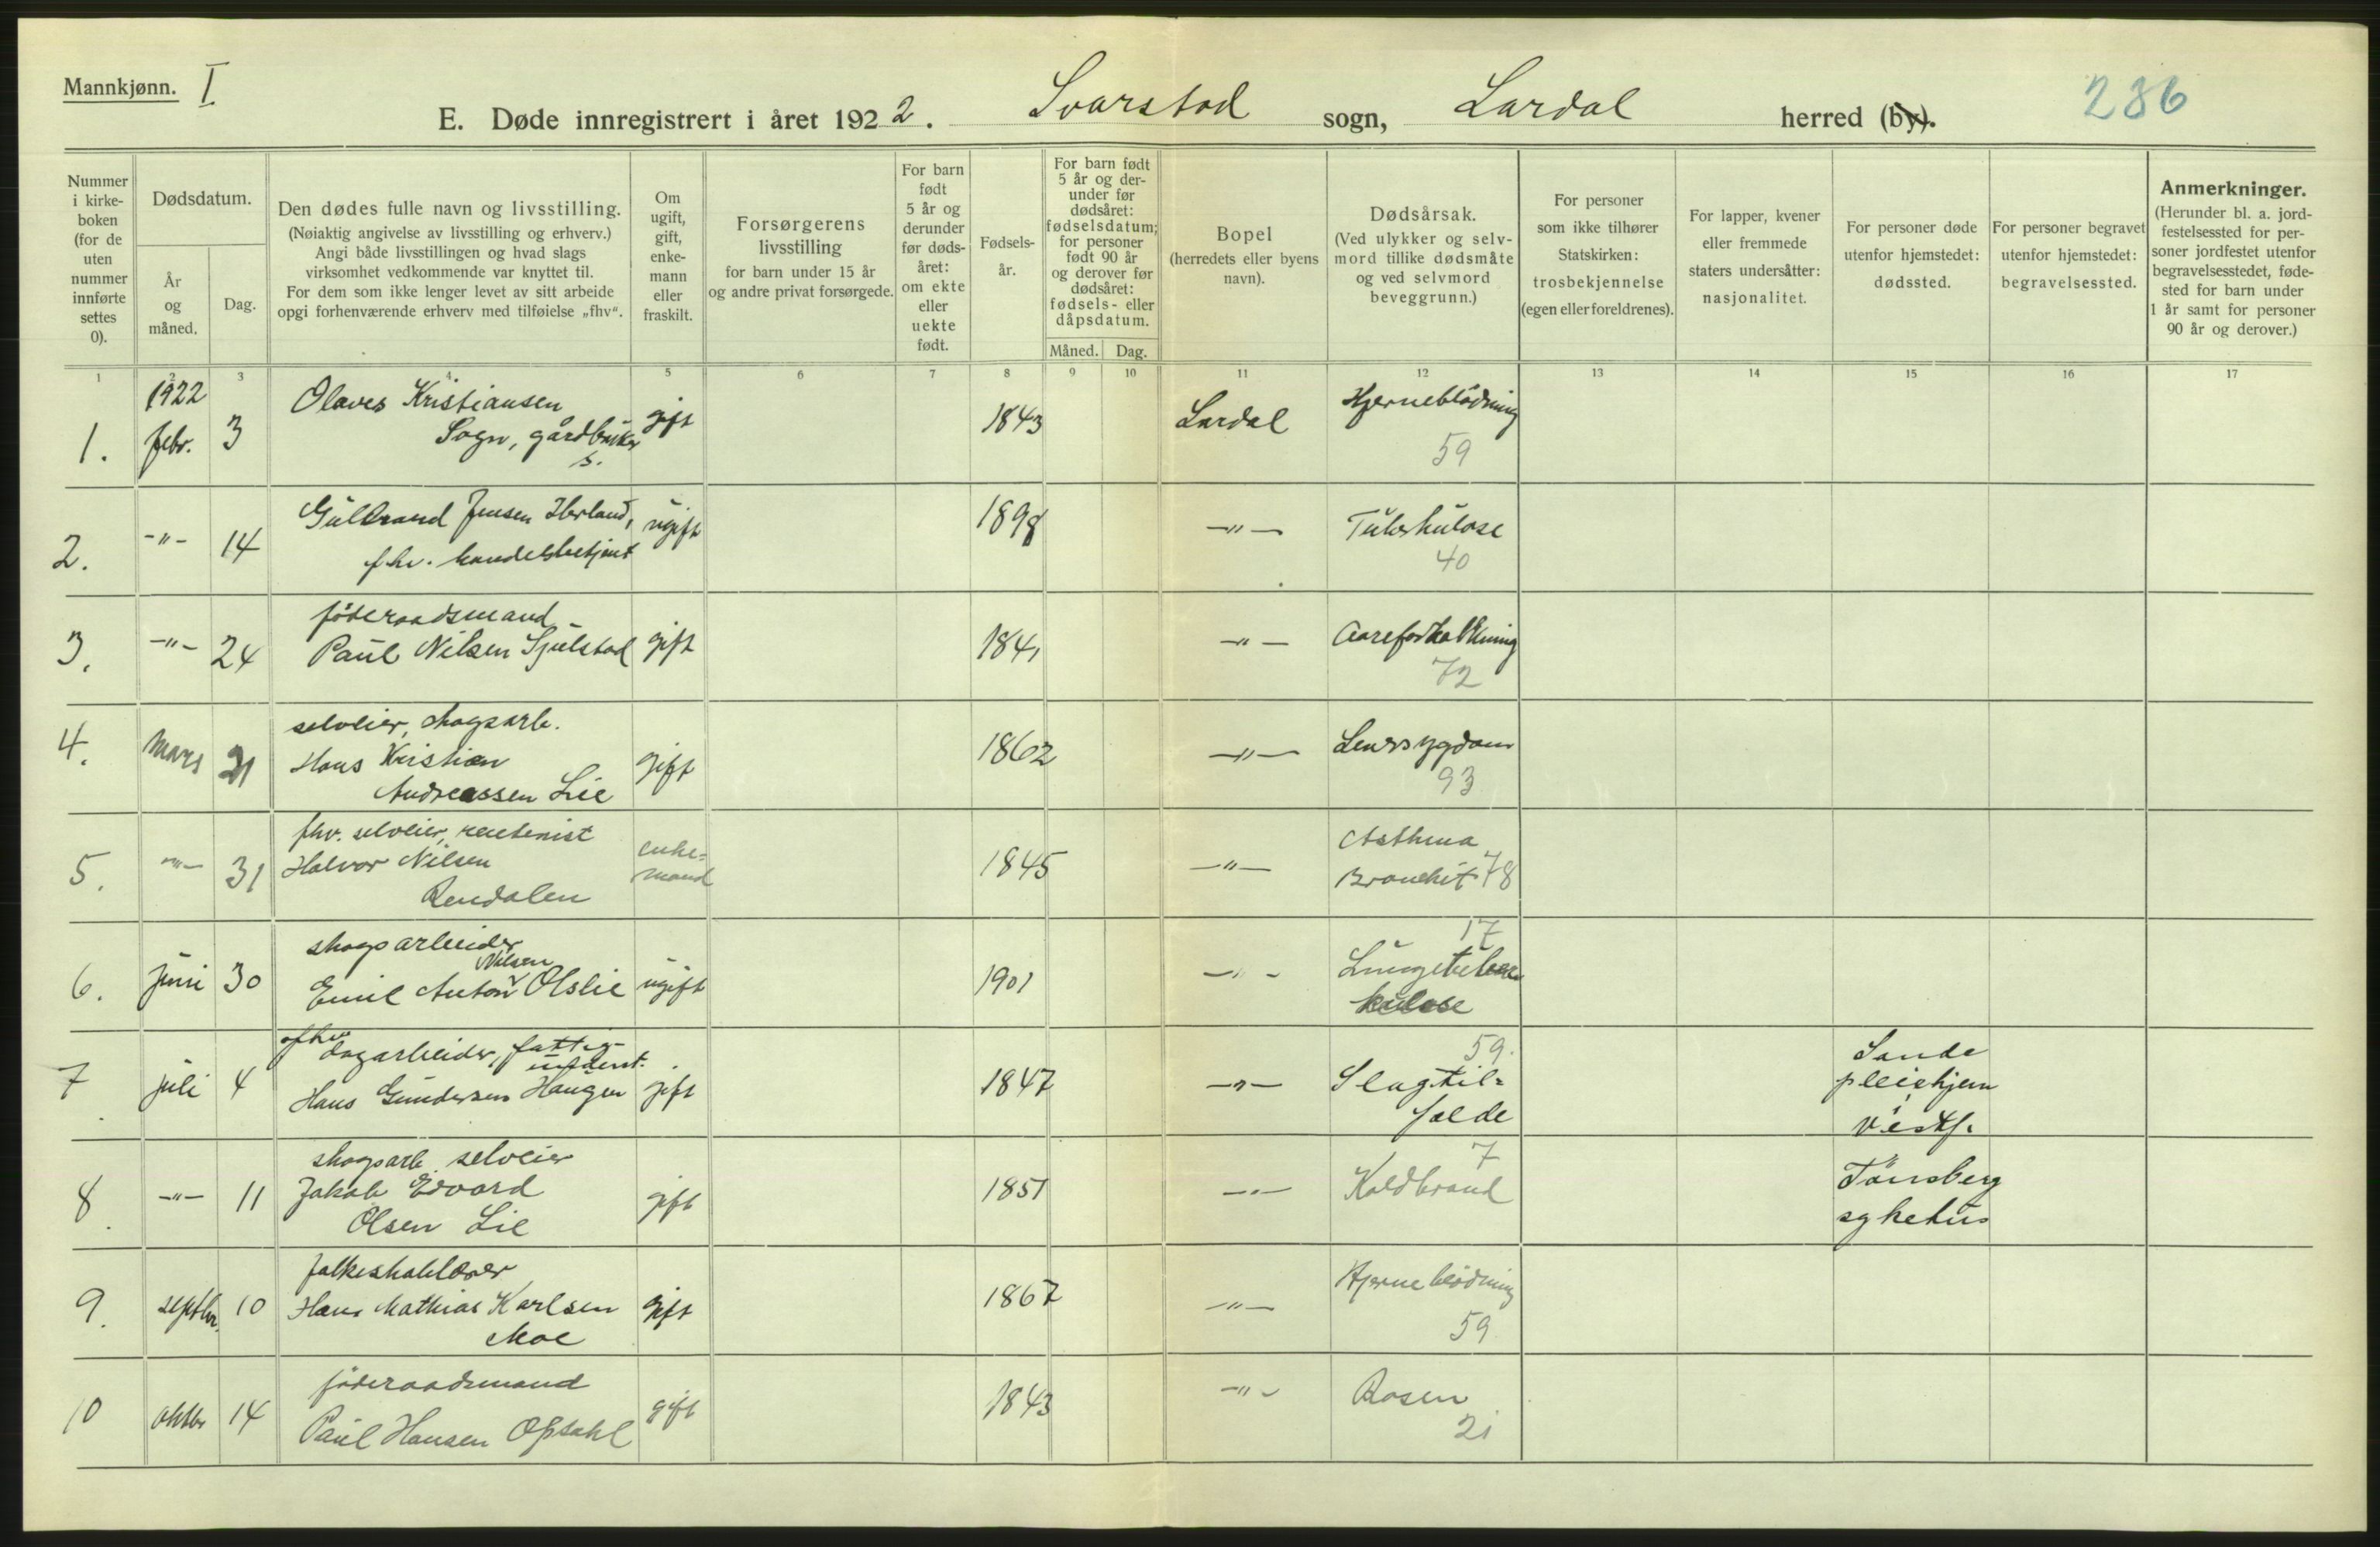 Mannkjønn. I
E. Døde innregistrert i året 1922. Svarstad sogn, Lardal herred (by).
286
Nummer i kirke-boken (for de uten nummer innførte settes 0).
Dødsdatum.
År og måned.
Dag.
Den dødes fulle navn og livsstilling.
(Nøiaktig angivelse av livsstilling og erhverv.)
Angi både livsstillingen og hvad slags
virksomhet vedkommende var knyttet til.
For dem som ikke lenger levet av sitt arbeide
opgi forhenværende erhverv med tilføielse „fhv“.
Om ugift, gift, enke-mann eller fraskilt.
Forsørgerens
livsstilling
for barn under 15 år
og andre privat forsørgede.
For barn født 5 år og derunder før døds-året: om ekte eller uekte født.
Fødsels-år.
For barn født 5 år og der-under før dødsåret: fødselsdatum; for personer født 90 år og derover før dødsåret: fødsels- eller dåpsdatum.
Måned. Dag.
Bopel
(herredets eller byens navn).
Dødsårsak.
(Ved ulykker og selv-mord tillike dødsmåte og ved selvmord beveggrunn.)
For personer som ikke tilhører Statskirken: trosbekjennelse (egen eller foreldrenes).
For lapper, kvener eller fremmede staters undersåtter: nasjonalitet.
For personer døde utenfor hjemstedet: dødssted.
For personer begravet utenfor hjemstedet: begravelsessted.
Anmerkninger.
(Herunder bl. a. jord-festelsessted for per-soner jordfestet utenfor begravelsesstedet, føde-sted for barn under 1 år samt for personer 90 år og derover.)
1 2 3 4 5 6 7 8 9 10 11 12 13 14 15 16 17
1922
1. febr. 3 Olaves Kristiansen gift 1843 Lardal Hjerneblödning
Sogn, gårdbruker 59
s.
2. -"- 14 Gulbrand Jensen Herland, ugift 1898 -"- Tuberkulose
fhv. handelsbetjent 40
föderaadsmand
3. -"- 24 Paul Nilsen Sjulstad gift 1841 -"- Aareforkalkning
72
selveier, skogsarb.
4. mars 21 Hans Kristian gift 1862 -"- Leversygdom
Andreassen Lie 93
fhv. selveier, rentenist Asthma
5. -"- 31 Halvor Nilsen enke=mand 1845 -"- Bronchit 78
Rendalen
skogsarbeider 17
Nilsen
6. juni 30 Emil Anton Olslie ugift 1901 -"- Lungetuber
kulose
fhv. dagarbeider, fattig- 59.
understr.
7 juli 4 Hans Gundersen Haugen gift 1847 -"- Slagtil=
fælde
Sande
pleiehjem
Vestf.
skogsarb. selveier 7
8. -"- 11 Jakob Edvard gift 1851 -"- Koldbrand
Olsen Lie
Tönsberg
sykehus
folkeskolelærer
9. septbr. 10 Hans Mathias Karlsen gift 1867 -"- Hjerneblödning
Moe 59
föderaadsmand
10 oktbr 14 Paul Hansen Opsahl gift 1843 -"- Rosen
21